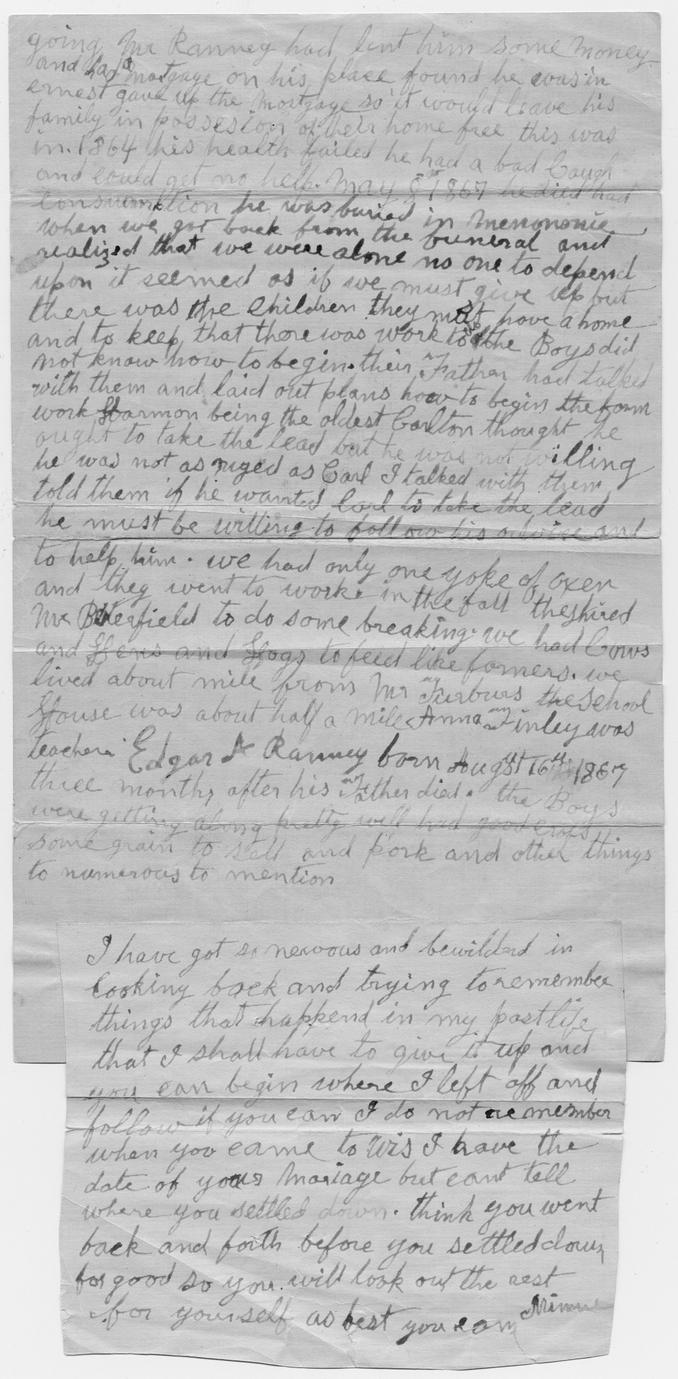 going Mr Ranney had lent him some money
and had a mortgage on his place found he was in
ernest gave up the mortgage so it would leave his
family in possesion of their home free this was
in. 1864 his health failed he had a bad Cough
and could get no help. May 8th 1867 he died had
Consumktion he was buried in menomonie
when we got back from the funeral and
realized that we were alone no one to depend
upon it seemed as if we must give up but
there was the Children they must have a home
and to keep that there was work to do the Boys did
not know how to begin. their Father had talked
with them and laid out plans how to begin the farm
work Harmon being the oldest Carlton thought he
ought to take the lead but he was not willing
he was not as ruged as Carl I talked with them
told them if he wanted Carl to take the lead
he must be willing to follow his advise and
to help him. we had only one yoke of oxen
and they went to work. in the fall they hired
Mr Buterfield to do some breaking. we had Cows
and Hens and Hogs to feed like farmers. we
lived about mile from Mr Furburs the school
House was about half a mile Anna Finley was
teacher. Edgar A Ranney born August 16th 1867
three months after his Father died. the Boys
were getting along pretty well had good crops
some grain to sell and pork and other things
to numerous to mention
I have got so nervous and bewilderd in
looking back and trying to remember
things that happend in my past life
that I shall have to give it up and
you can begin where I left off and
follow if you can I do not remember
when you came to Wis I have the
date of your Mariage but cant tell
where you settled down. think you went
back and forth before you settled down
for good so you will look out the rest
for yourself as best you can